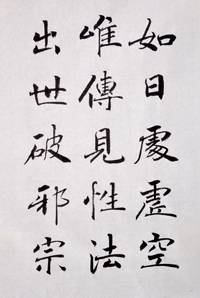 如日處虛空
唯傳見性法
出世破邪宗